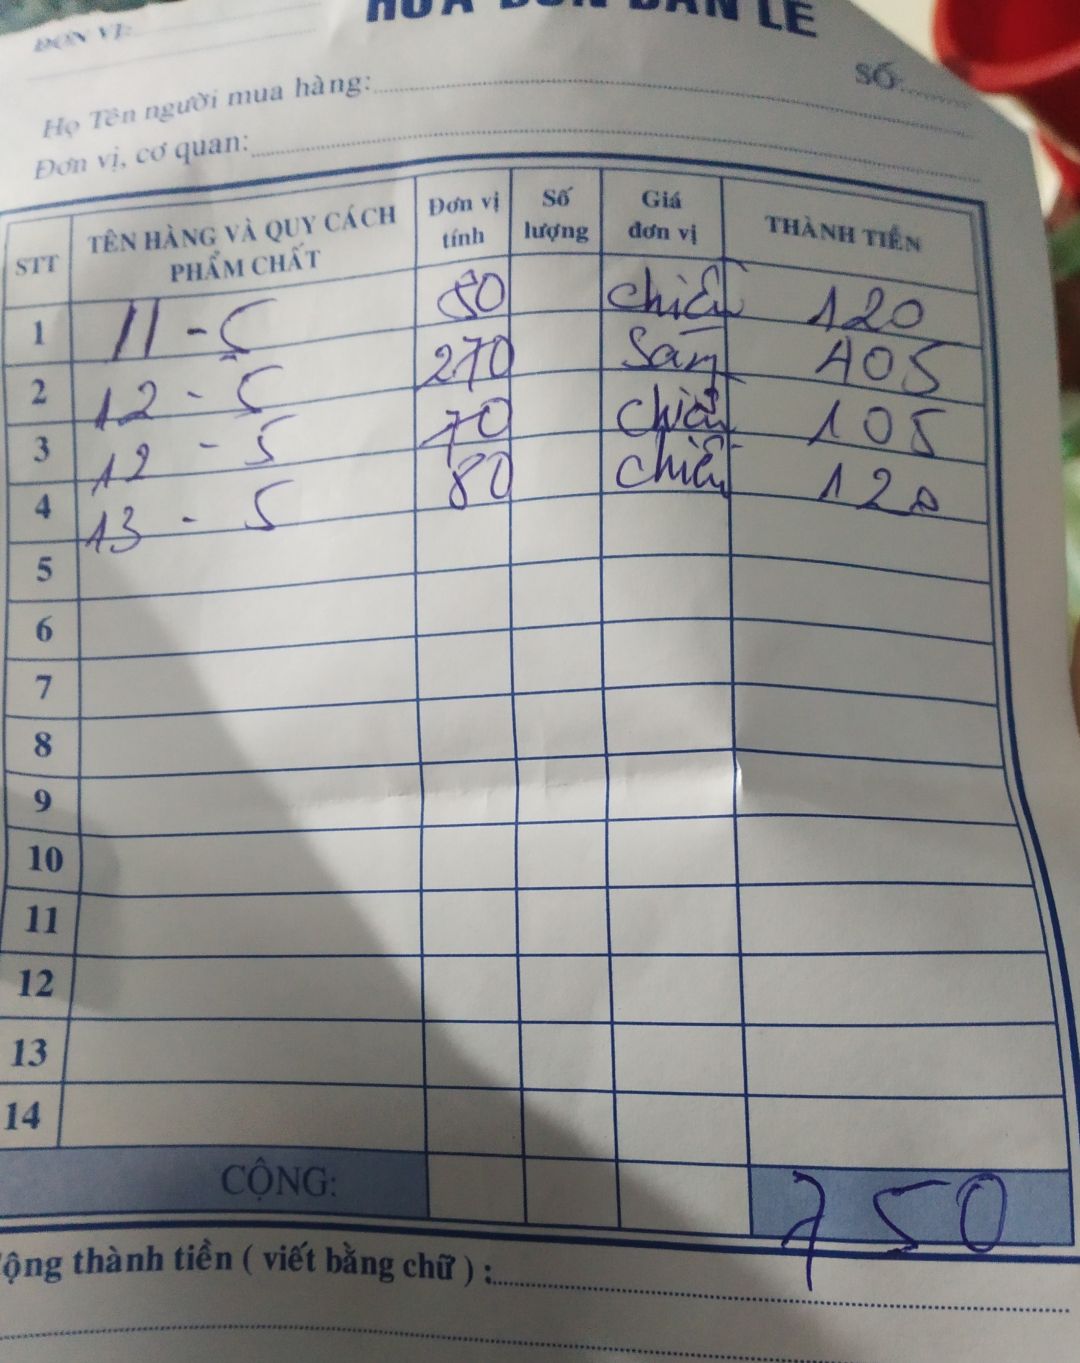 HÓA ĐƠN BÁN LẺ
ĐƠN VỊ:
SỐ:
Họ Tên người mua hàng:
Đơn vị, cơ quan:
STT TÊN HÀNG VÀ QUY CÁCH PHẨM CHẤT Đơn vị tính Số lượng Giá đơn vị THÀNH TIỀN
1 11 - 5 80 chiều 120
2 12 - 5 270 Sáng 405
3 12 - 5 70 chiều 105
4 13 - 5 80 chiều 120
5
6
7
8
9
10
11
12
13
14
CỘNG: 750
Cộng thành tiền ( viết bằng chữ ) :